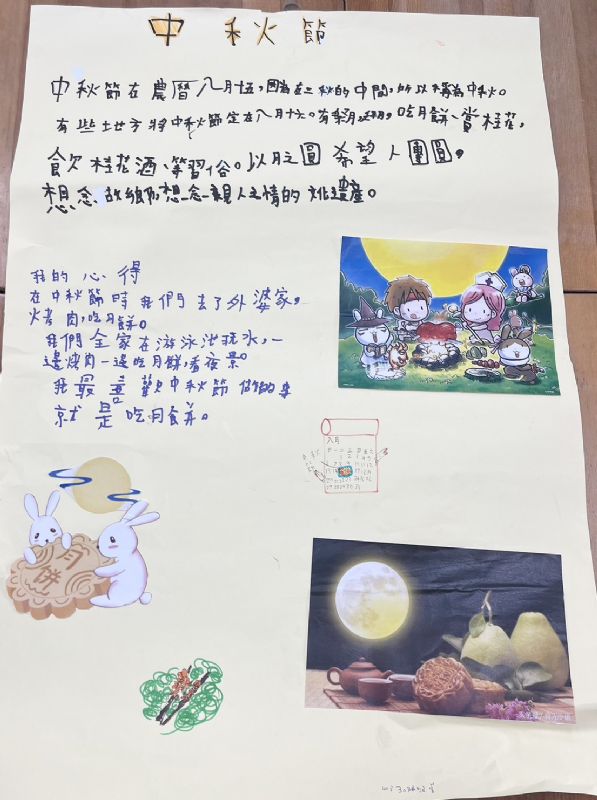 中秋節
中秋節在農曆八月十五，因為在三秋的中間，所以稱為中秋。
有些地方將中秋節定在八月十六。有祭月，吃月餅、賞桂花，
飲桂花酒、等習俗。以月之圓希望人團圓，
想念故鄉，想念親人之情的文化遺產。
我的心得
在中秋節時我們去了外婆家，
烤肉，吃月餅。
我們全家在游泳池玩水，一
邊烤肉一邊吃月餅，看夜景。
我最喜歡中秋節做的事
就是吃月餅。
八月
月餅